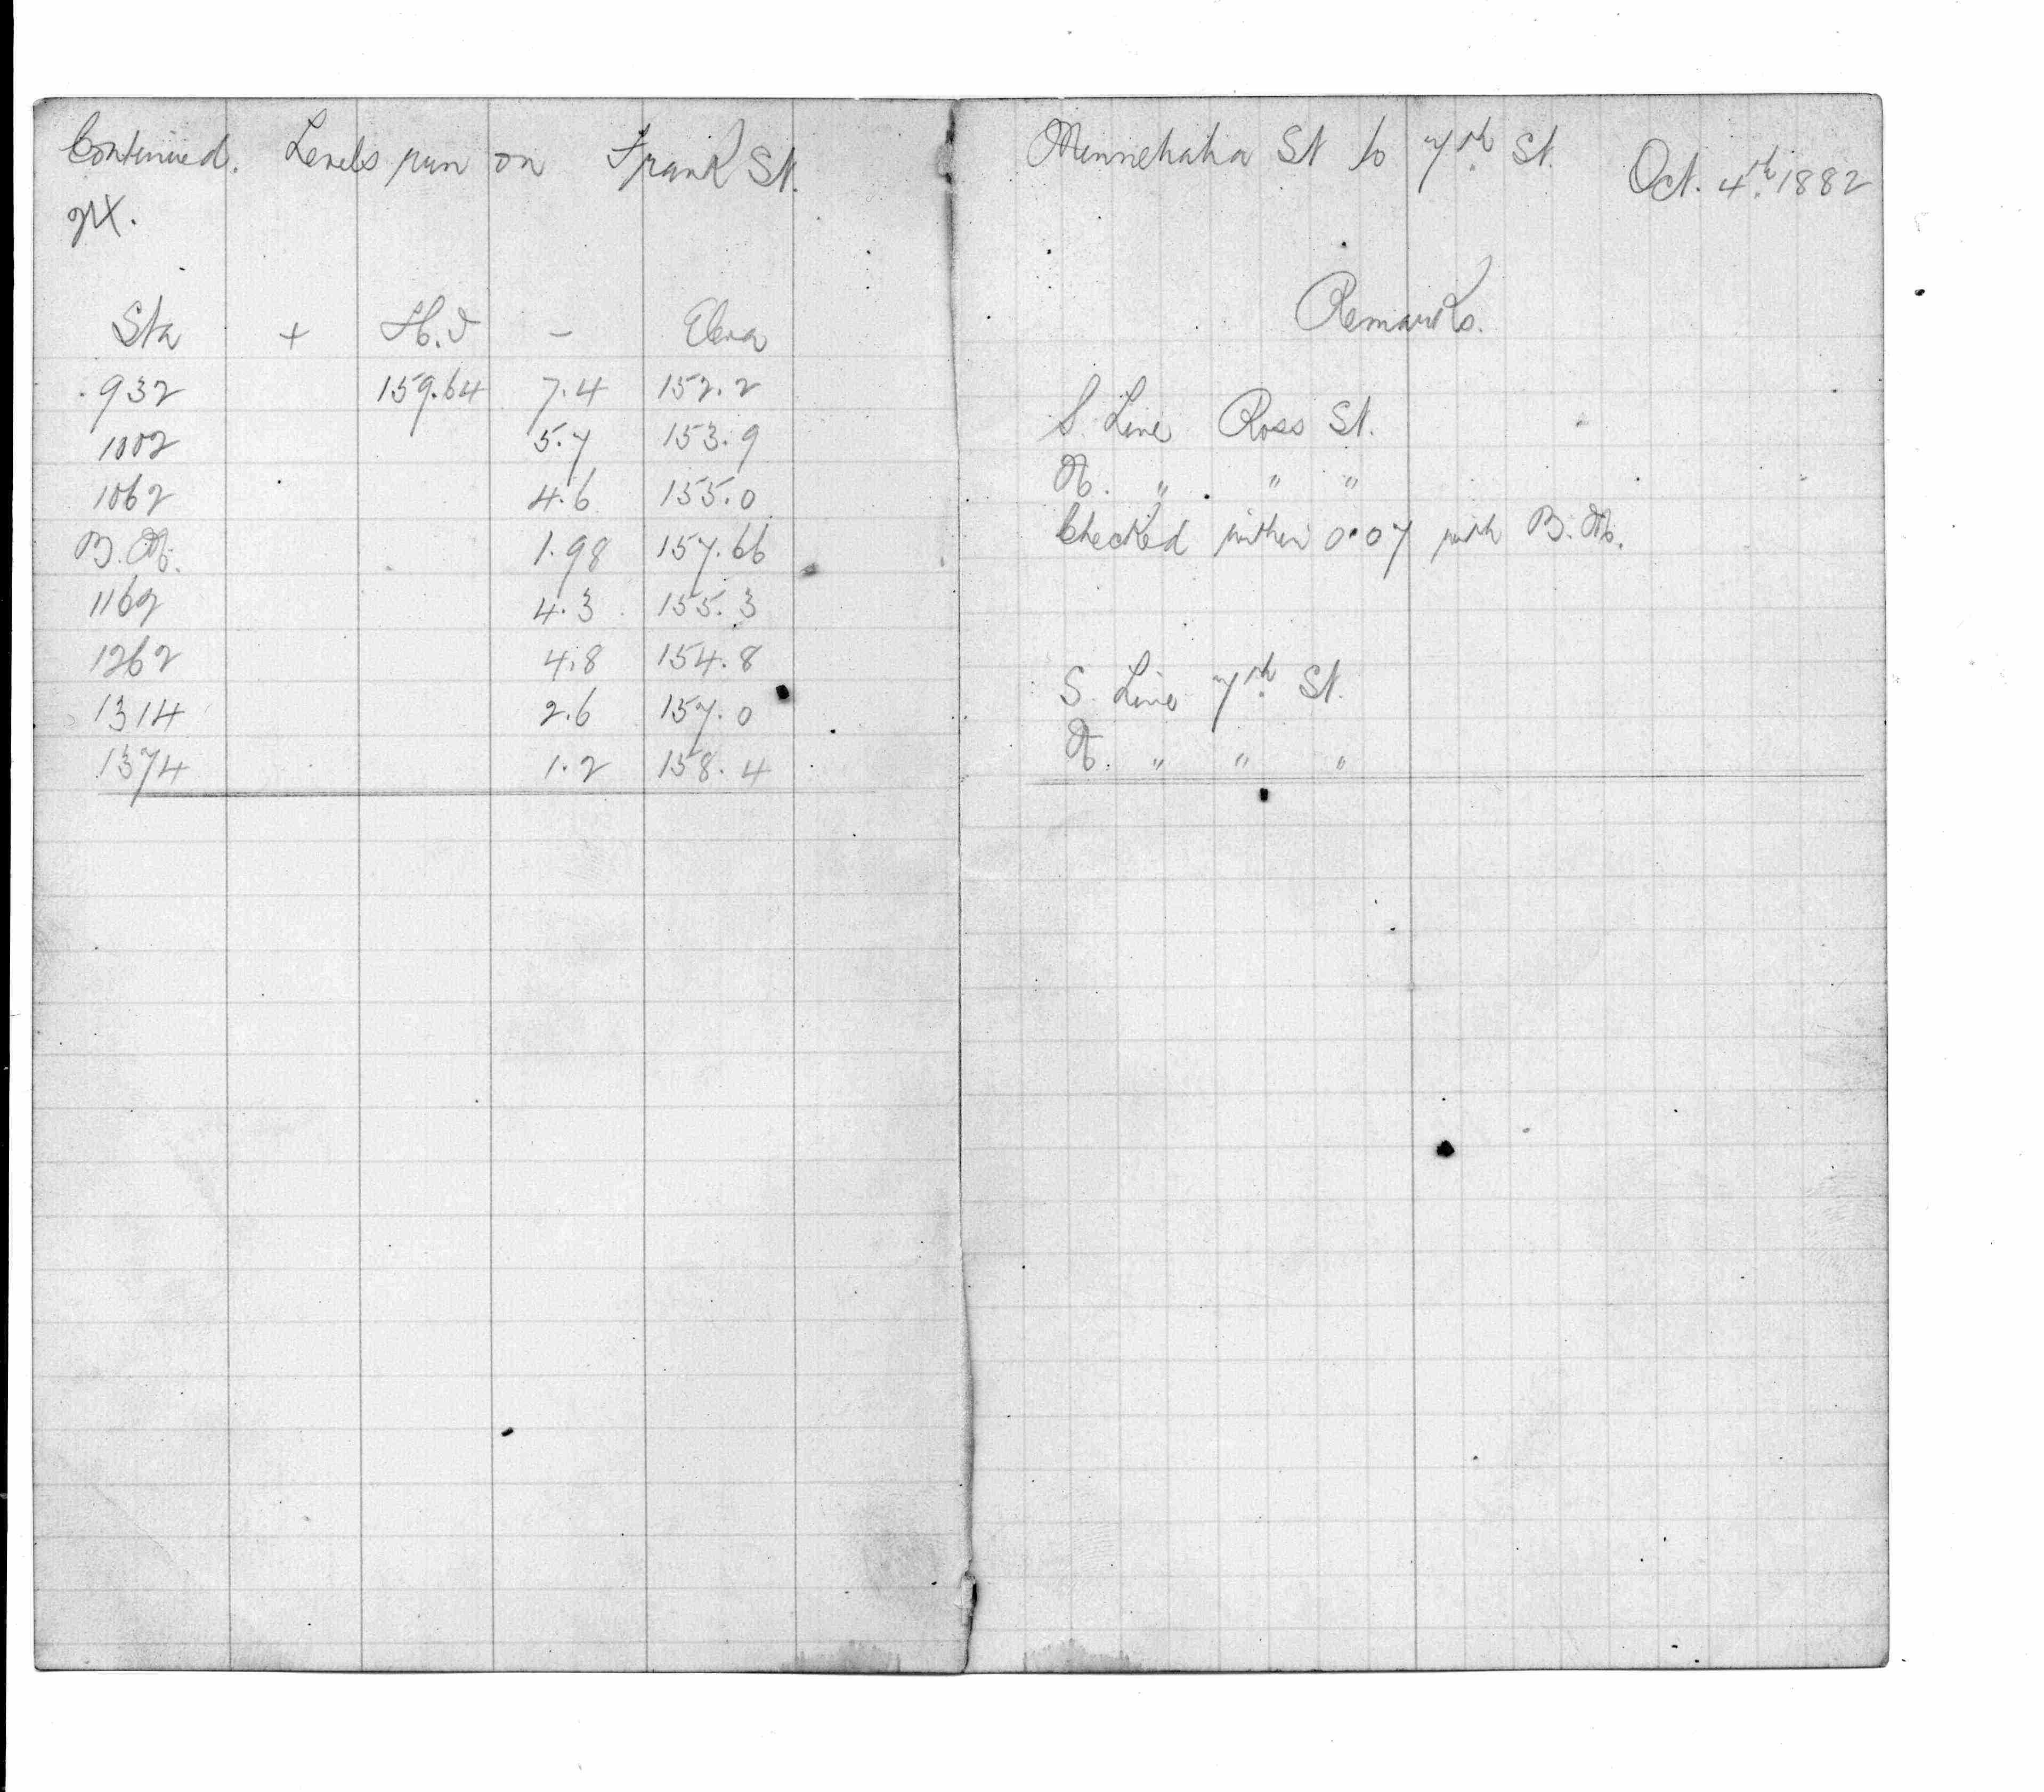 Continued. Levels run on Frank St. Minnehaha St to 7th St. Oct. 4th 1882
Remarks.
Sta + H.I - Eleva
932 159.64 7.4 152.2
1002 5.7 153.9 S. Line Ross St.
1062 4.6 155.0 N. " " "
B.M. 1.98 157.66 Checked within 0.07 with B.M.
1162 4.3 155.3
1262 4.8 154.8
1314 2.6 157.0 S. Line 7th St.
1374 1.2 158.4 N. " " "